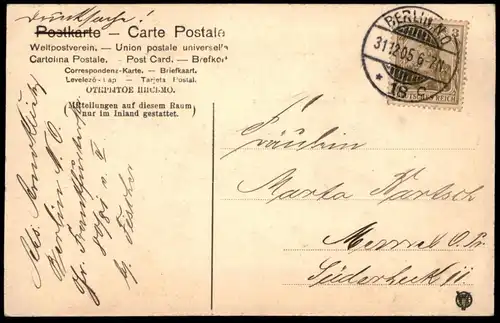 Drucksache!
Postkarte — Carte Postale
Weltpostverein. — Union postale universelle
Cartolina Postale. — Post Card. — Brefkort
Correspondenz-Karte. — Briefkaart.
Levelező-Lap — Tarjeta Postal.
ОТКРЫТОЕ ПИСЬМО.
(Mitteilungen auf diesem Raum
nur im Inland gestattet.)
Berlin N.O.
Gr. Frankfurterstr.
80/81 v. II
BERLIN N.O
31.12.05. 6-7N.
* 18 c *
3
DEUTSCHES REICH
Fräulein
Marta Bartsch
Memel O. Pr.